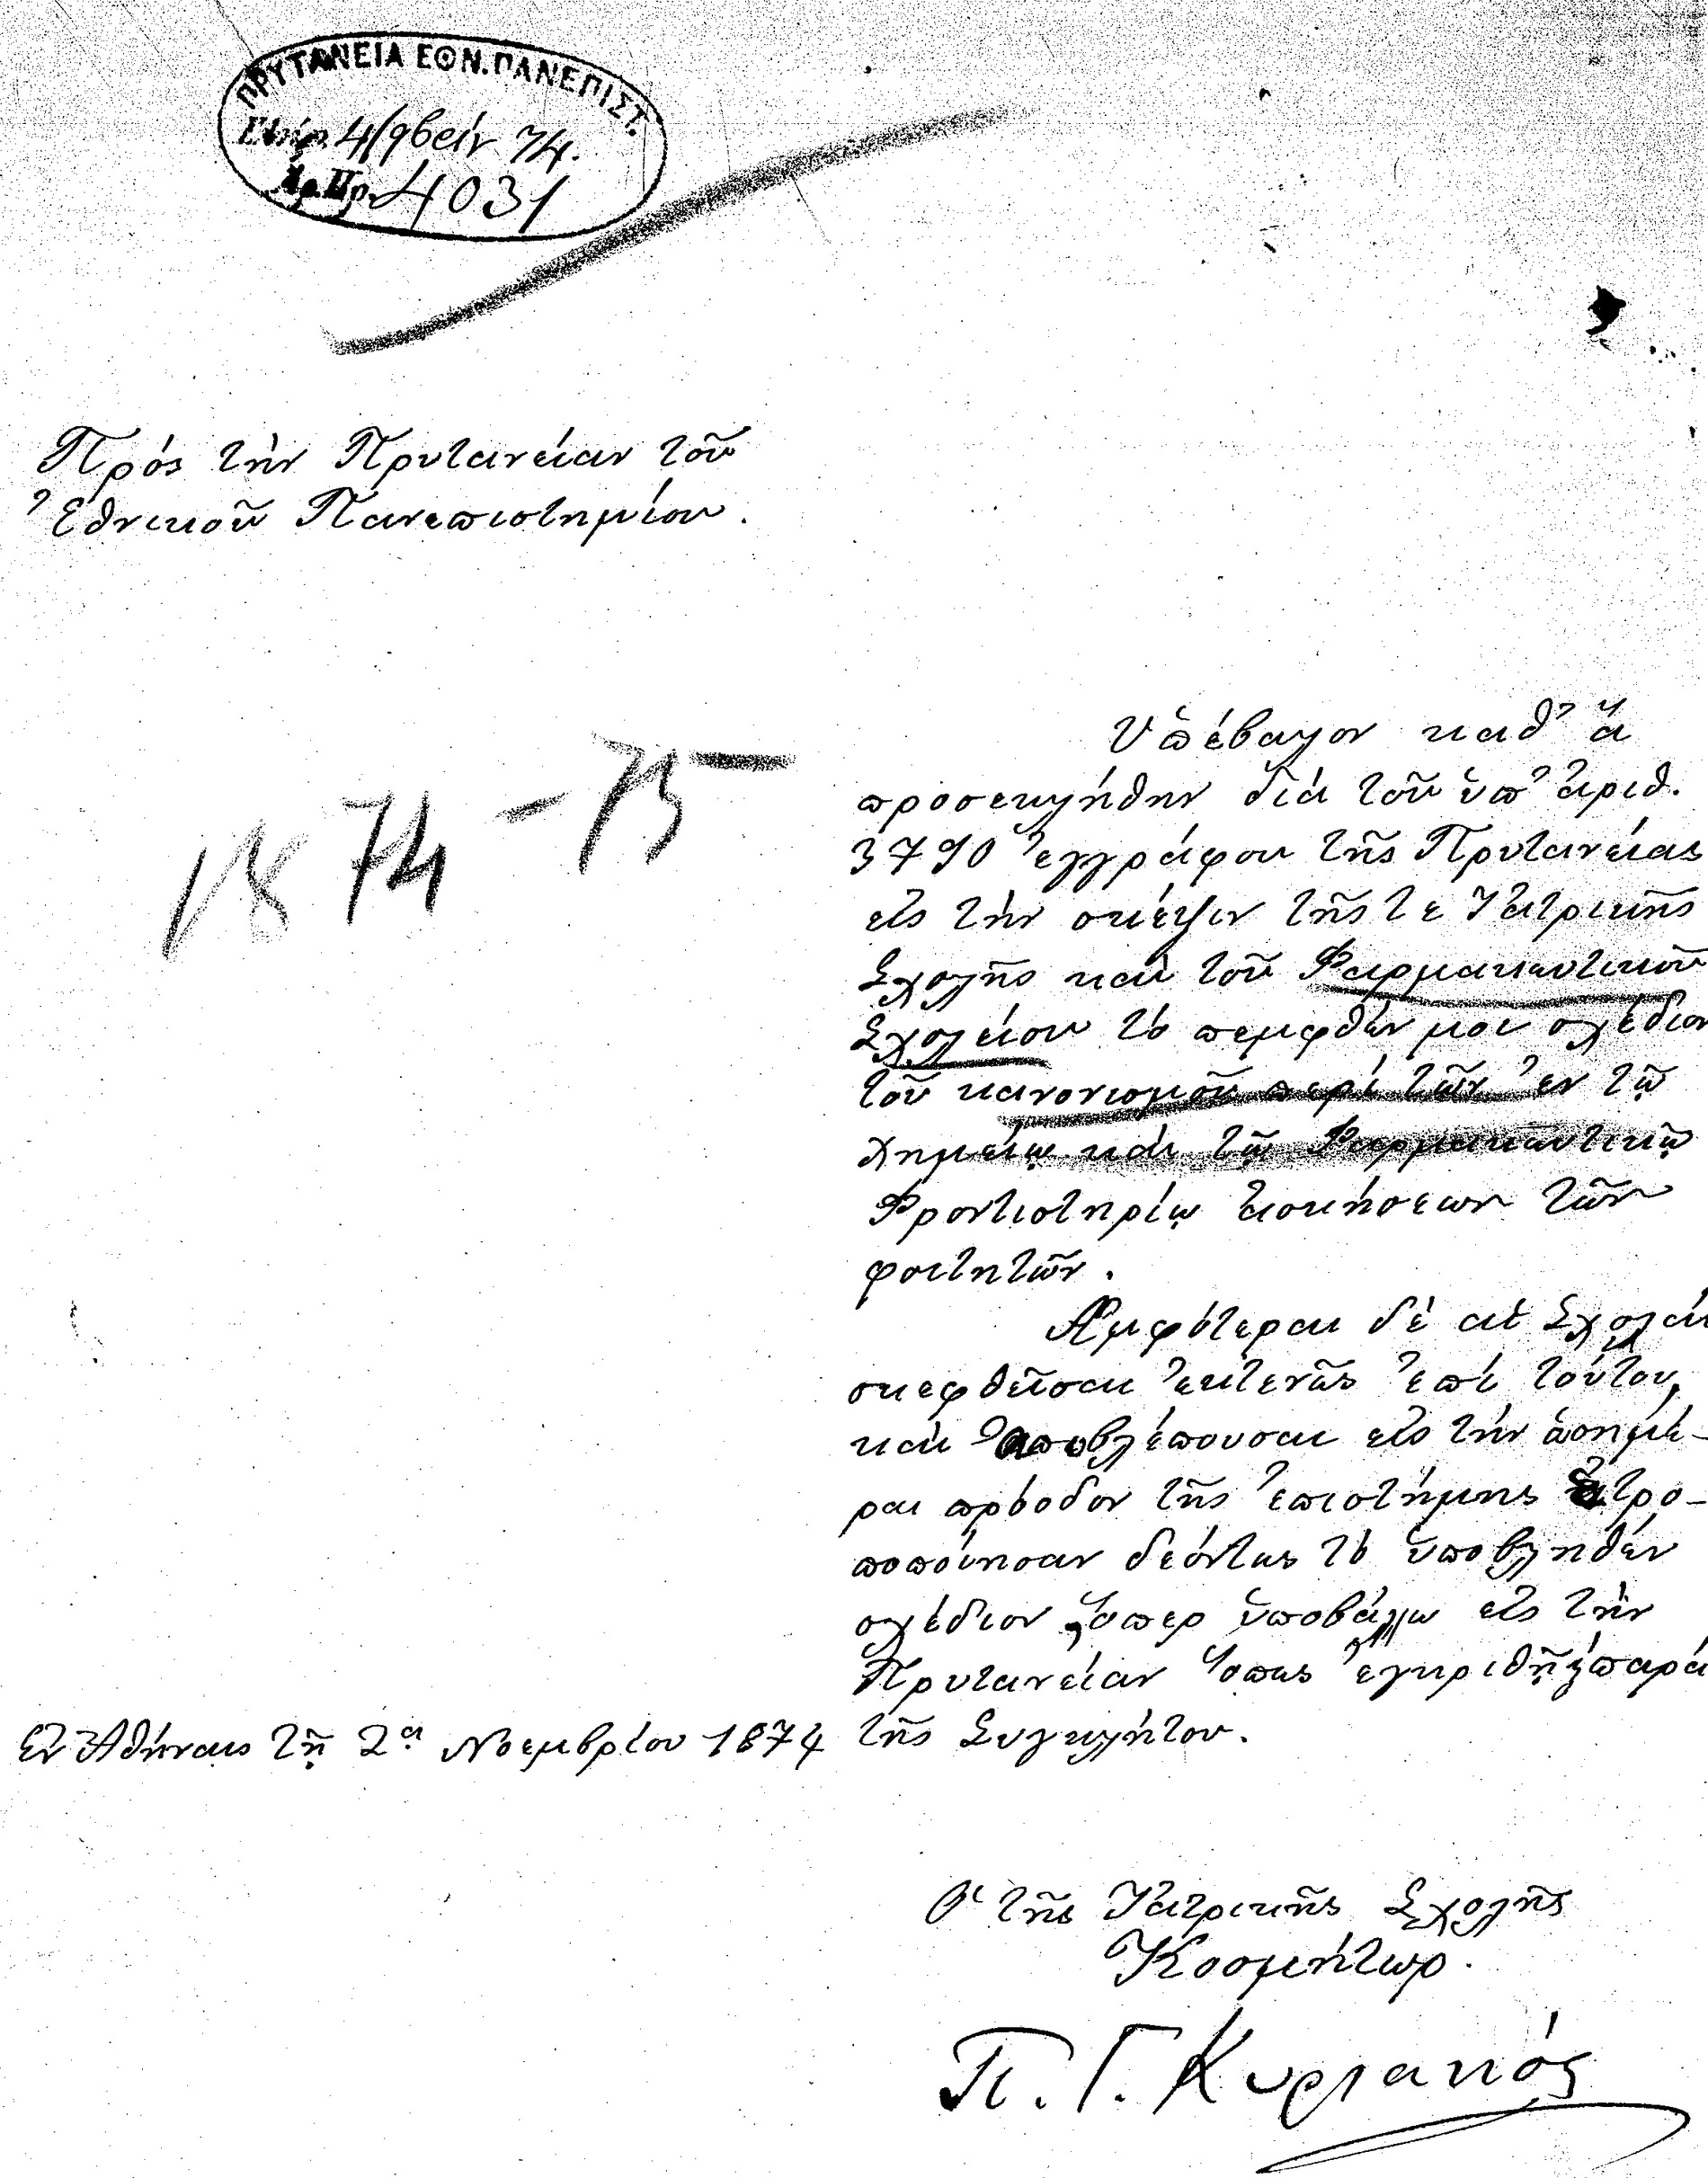 ΠΡΥΤΑΝΕΙΑ ΕΘΝ. ΠΑΝΕΠΙΣΤ.
4/9βρίου 74.
Ἀρ. Πρ. 4031
Πρὸς τὴν Πρυτανείαν τοῦ
Ἐθνικοῦ Πανεπιστημίου.
1874-75
Ὑπέβαλον καθ' ἃ
προσεκλήθην διὰ τοῦ ὑπ' ἀριθ.
3790 ἐγγράφου τῆς Πρυτανείας
εἰς τὴν σκέψιν τῆς τε Ἰατρικῆς
Σχολῆς καὶ τοῦ Φαρμακευτικοῦ
Σχολείου τὸ πεμφθέν μοι σχέδιον
τοῦ κανονισμοῦ περὶ τῶν ἐν τῷ
Χημείῳ καὶ τῷ Φαρμακευτικῷ
Φροντιστηρίῳ ἀσκήσεων τῶν
φοιτητῶν.
Ἀμφότεραι δὲ αἱ Σχολαὶ
σκεφθεῖσαι ἐκτενῶς ἐπὶ τούτου,
καὶ ἀποβλέπουσαι εἰς τὴν ὁσημέ-
ραι πρόοδον τῆς ἐπιστήμης ἐτρο-
ποποίησαν δεόντως τὸ ὑποβληθὲν
σχέδιον, ὅπερ ὑποβάλλω εἰς τὴν
Πρυτανείαν ὅπως ἐγκριθῇ παρὰ
τῆς Συγκλήτου.
Ἐν Ἀθήναις τῇ 2ᾳ Νοεμβρίου 1874
Ὁ τῆς Ἰατρικῆς Σχολῆς
Κοσμήτωρ.
Π. Γ. Κυριακός